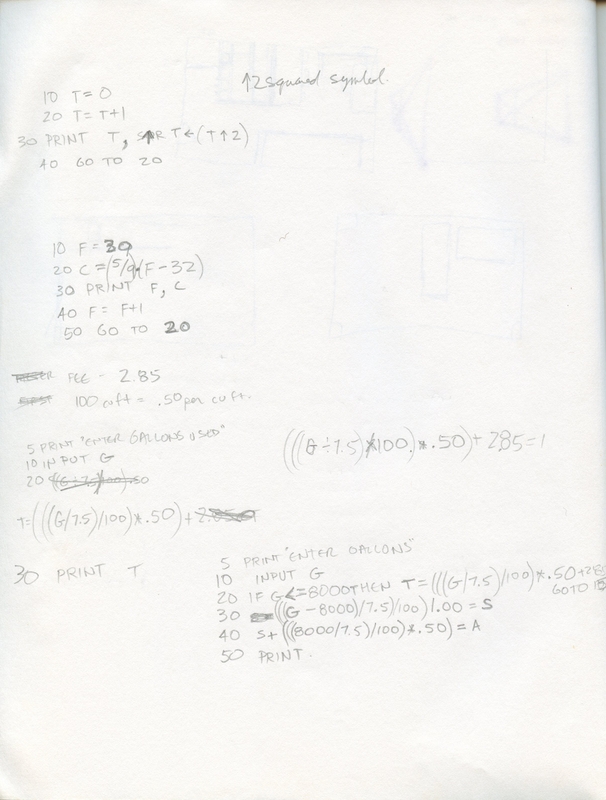 ↑2 squared symbol.
10 T=0
20 T=T+1
30 PRINT T, T←(T↑2)
40 GO TO 20
10 F=30
20 C=(5/9)*(F-32)
30 PRINT F, C
40 F= F+1
50 GO TO 20
FEE - 2.85
100 cu ft = .50 per cu ft.
5 PRINT "ENTER GALLONS USED"
10 INPUT G
20
(((G÷7.5)/100)*.50)+2.85=1
T=(((G/7.5)/100)*.50)+
30 PRINT T
5 PRINT "ENTER GALLONS"
10 INPUT G
20 IF G<=8000 THEN T=(((G/7.5)/100)*.50+2.85
GOTO
30 ((G-8000)/7.5)/100)1.00=S
40 S+(((8000/7.5)/100)*.50)=A
50 PRINT.